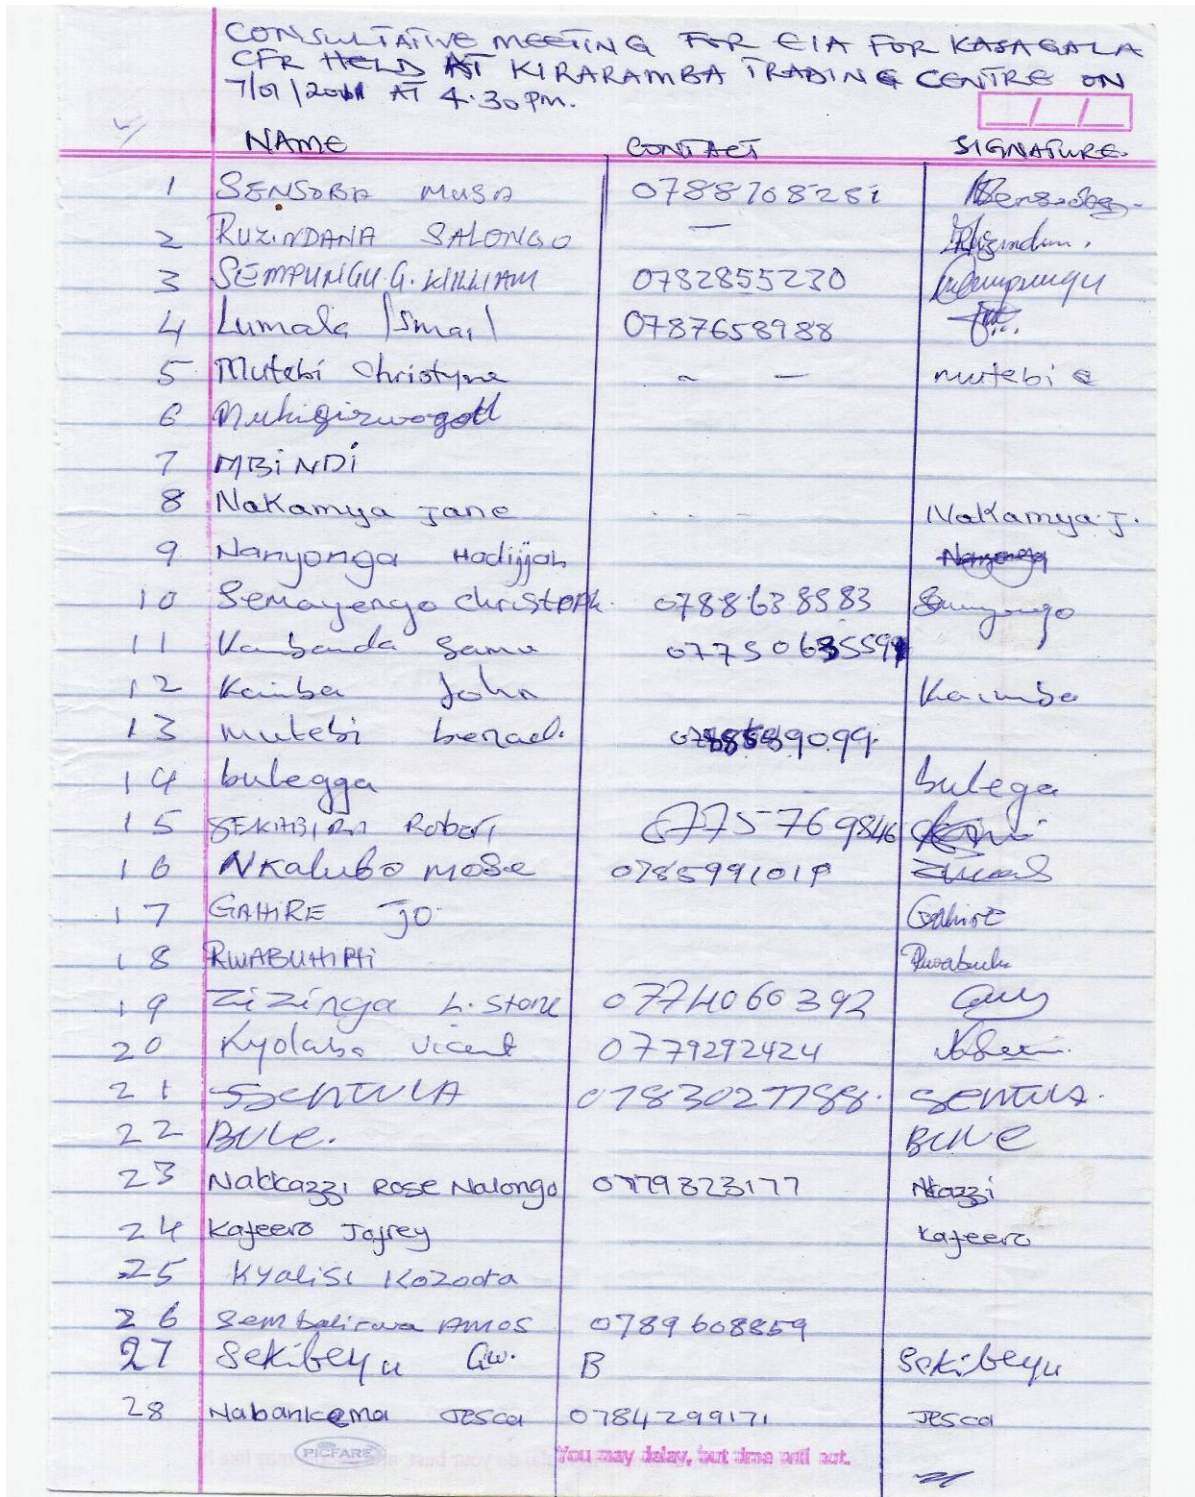 CONSULTATIVE MEETING FOR EIA FOR KASAGALA
CFR HELD AT KIRARAMBA TRADING CENTRE ON
7/01/2011 AT 4:30PM.
NAME CONTACT SIGNATURE
1 SENSOBA MUSA 0788708281
2 RUZINDANA SALONGO —
3 SEMPUNGU.G. WILLIAM 0782855230 Sempungu
4 Lumala Ismail 0787658988
5 Mutebi Christyne - — mutebi c
6
7 MBiNDi
8 Nakamya Jane - - - Nakamya.J.
9 Nanyonga Hadijjah Nanyonga
10 Semayengo Christoph. 0788638583
11 Kambanda Samu
12 Kaimba John Kaimba
13 mutebi benad.
14 bulegga bulega
15 SEKABIRA Robert 0775769846
16 Nkalubo mose 0785991019
17 GAHIRE JO. Gahire
18 RWABUHIHI Rwabuhi
19 Zizinga L. Stone 0774060392
20 Kyolaba Vicent 0779292424
21 SSENTULA 0783027788. SENTULA.
22 BULE. BULE
23 Nakkazzi ROSE Nalongo 0779323177 Nkazzi
24 Kafeero Jofrey Kafeero
25 Kyalisi Kozoota
26 Sembalirwa AMOS 0789608859
27 Sekibeyu Gw. B Sekibeyu
28 Nabankema Jesca 0784299171 Jesca
PICFARE You may delay, but time will not.